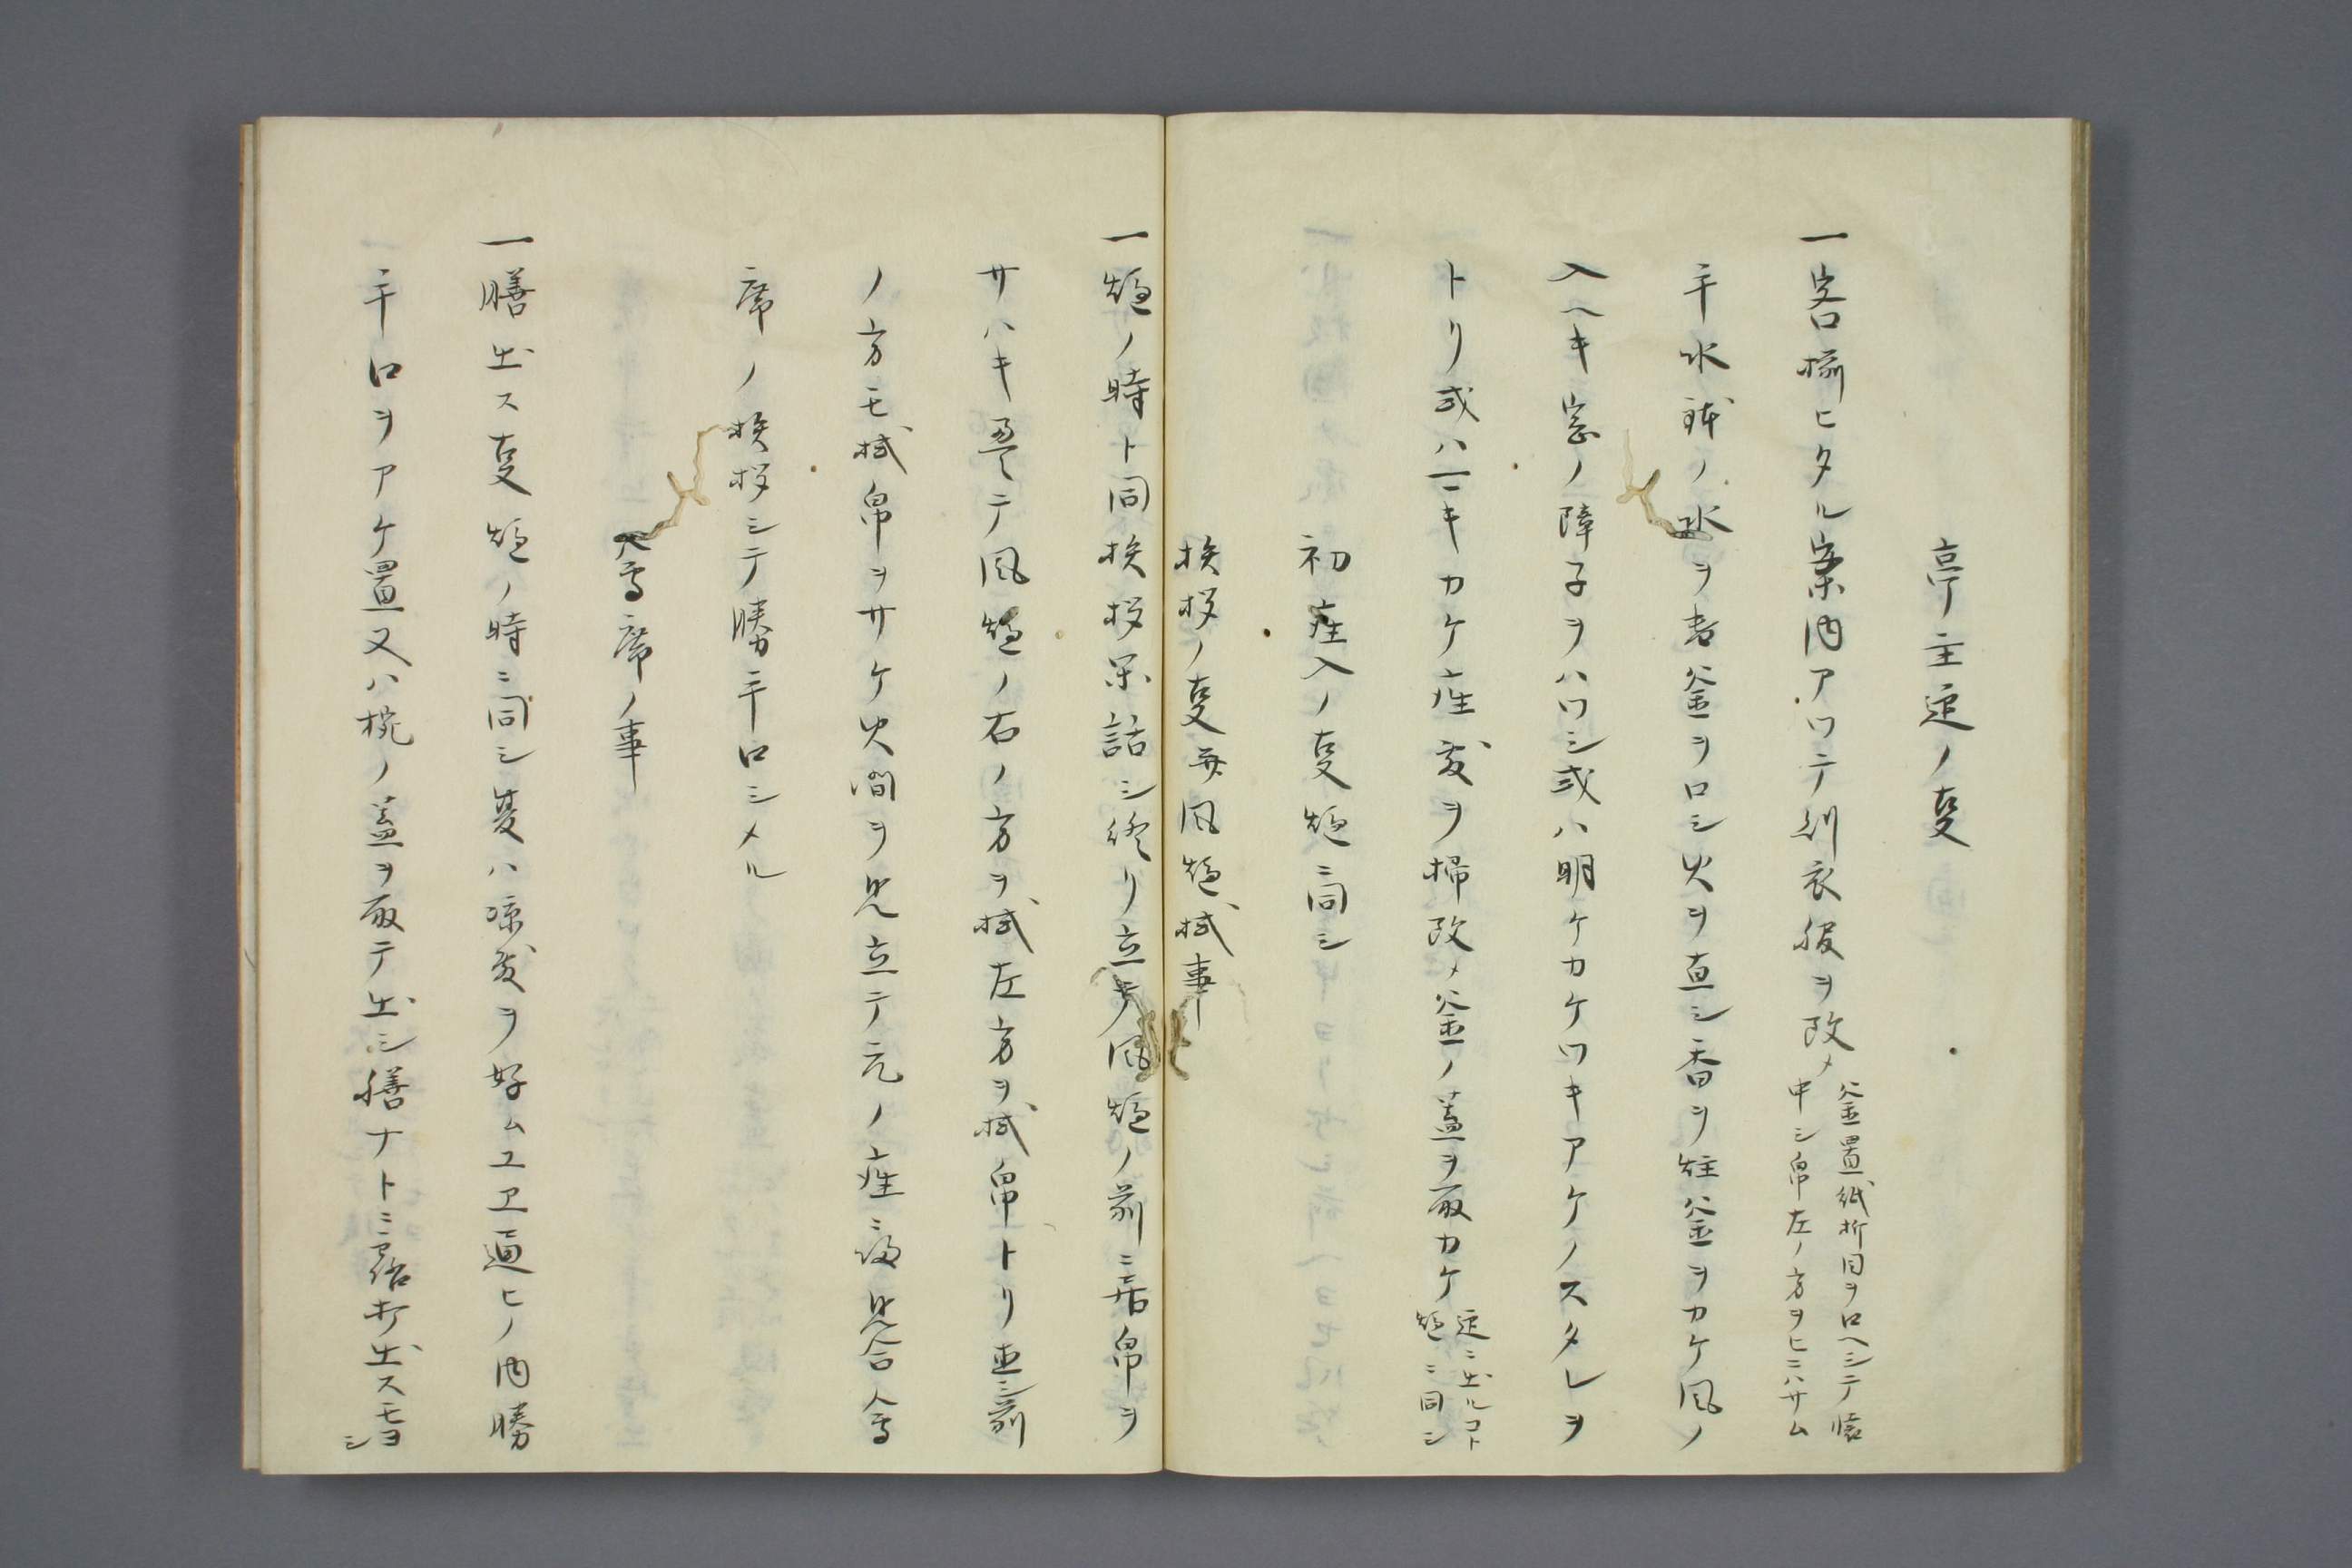 亭主迎ノ叓
一客揃ヒタル案内アツテ則衣服ヲ改メ
釜置紙折目ヲ口ヘシテ懐
中シ帛左ノ方ヲヒニハサム
手水鉢ノ水ヲ者釜ヲロシ火ヲ直シ香ヲ炷釜ヲカケ風ノ
入ヘキ窓ノ障子ヲハツシ或ハ明ケカケツキアケノスタレヲ
トリ或ハ一ニキカケ座敷ヲ掃改メ釜ノ蓋ヲ取カケ
迎ニ出ルコト
炉ニ同シ
初座入ノ叓炉ニ同シ
挨拶ノ叓并風炉拭事
一炉ノ時ト同挨拶茶話シ終リ立テ風炉ノ前ニ居帛ヲ
サハキ畳テ風炉ノ右ノ方ヲ拭左方ヲ拭帛トリ直シ前
ノ方モ拭帛ヲサケ火間ヲ見立テ元ノ座ニ帰見合会
席ノ挨拶シテ勝手口シメル
会席ノ事
一膳出ス叓炉ノ時ニ同シ夏ハ凉敷ヲ好ムユヱ通ヒノ内勝
手口ヲアケ置又ハ椀ノ蓋ヲ取テ出シ膳ナトニ露打出スモヨ
シ